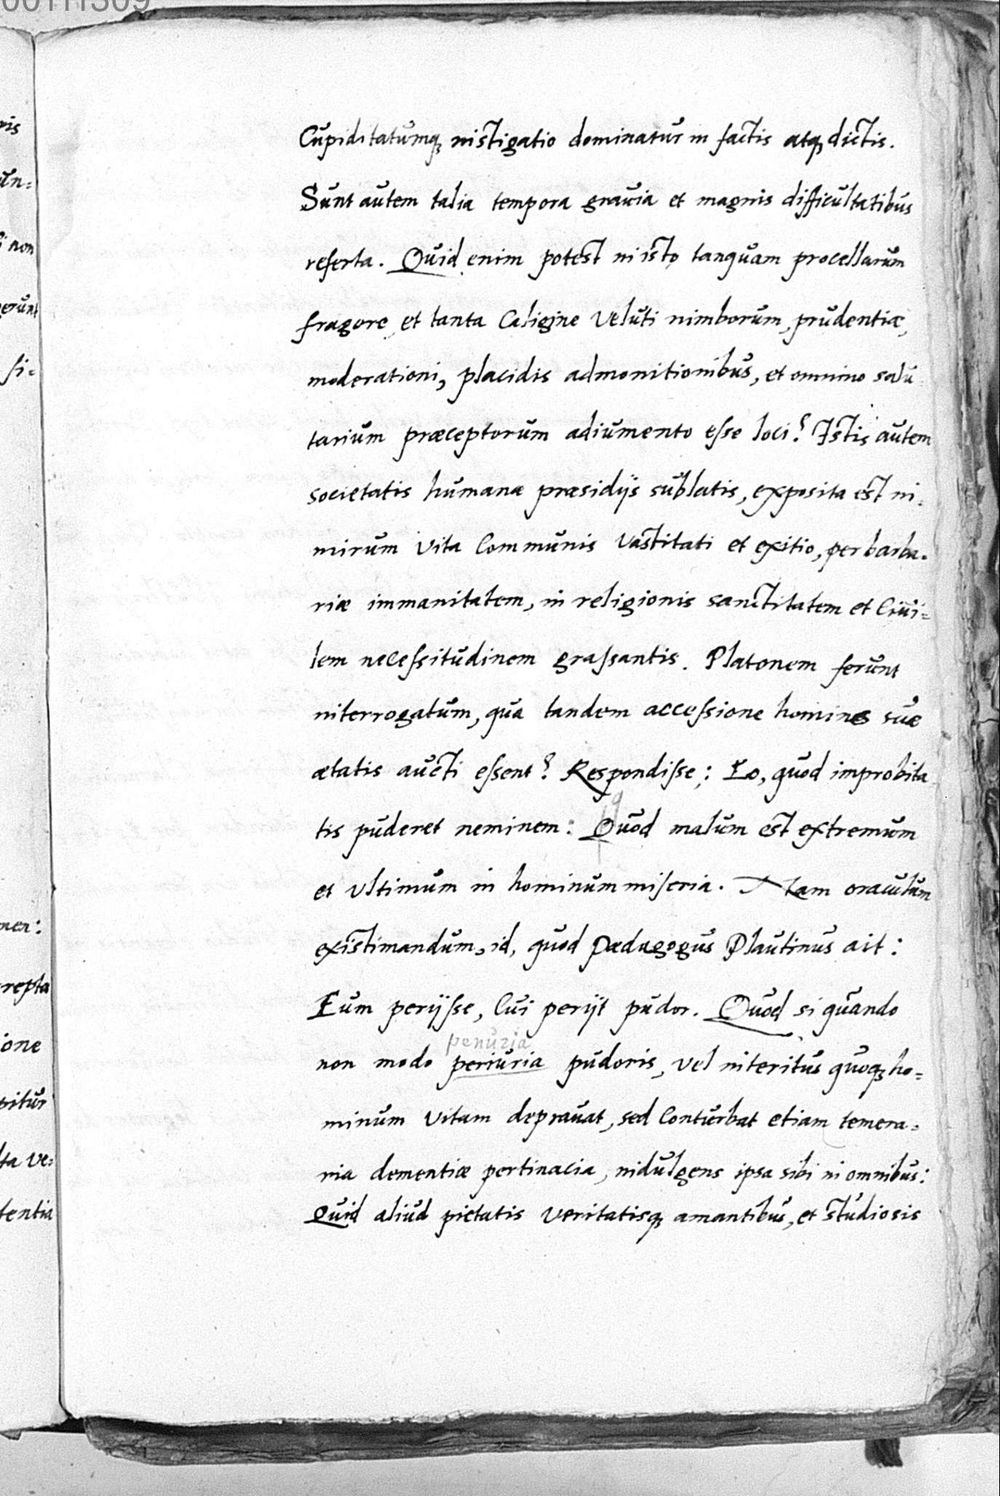 00111309
Cupiditatumq, instigatio dominatur in factis atq, dictis.
Sunt autem talia tempora grauia et magnis difficultatibus
referta. Quid enim potest in isto tanquam procellarum
fragore, et tanta Caligine veluti nimborum, prudentiæ,
moderationi, placidis admonitionibus, et omnino salu
tarium præceptorum adiumento esse loci? Istis autem
societatis humanæ præsidijs sublatis, exposita est ni-
mirum vita Communis vastitati et exitio, per barba-
riæ immanitatem, in religionis sanctitatem et Ciui-
lem necessitudinem grassantis. Platonem ferunt
interrogatum, qua tandem accessione homines suæ
ætatis aucti essent? Respondisse: Eo, quod improbita
tis puderet neminem: Quod malum est extremum
et vltimum in hominum miseria. Nam oraculum
existimandum, id, quod Pædagogus Plautinus ait:
Eum perijsse, Cui perijt pudor. Quod si quando
penuria
non modo periuria pudoris, vel interitus quoq, ho-
minum vitam deprauat, sed Conturbat etiam temera-
ria dementiæ pertinacia, indulgens ipsa sibi in omnibus:
Quid aliud pietatis veritatisq, amantibus, et studiosis
ris
un-
i non
erunt
si-
men:
repta
ione
pitur
ta ve-
tentia